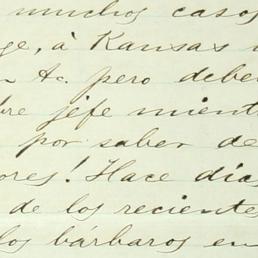 muchos casos
ge, à Kansas
&c. pero debe
bre jefe mient
por saber de
ores! Hace dias
de los reciente
los bárbaros en